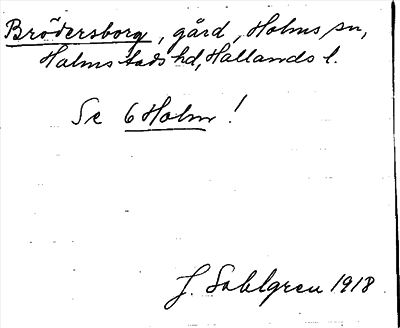 Brödersborg, gård, Holms sn,
Halmstads hd, Hallands l.
Se 6 Holm!
J. Sahlgren 1918